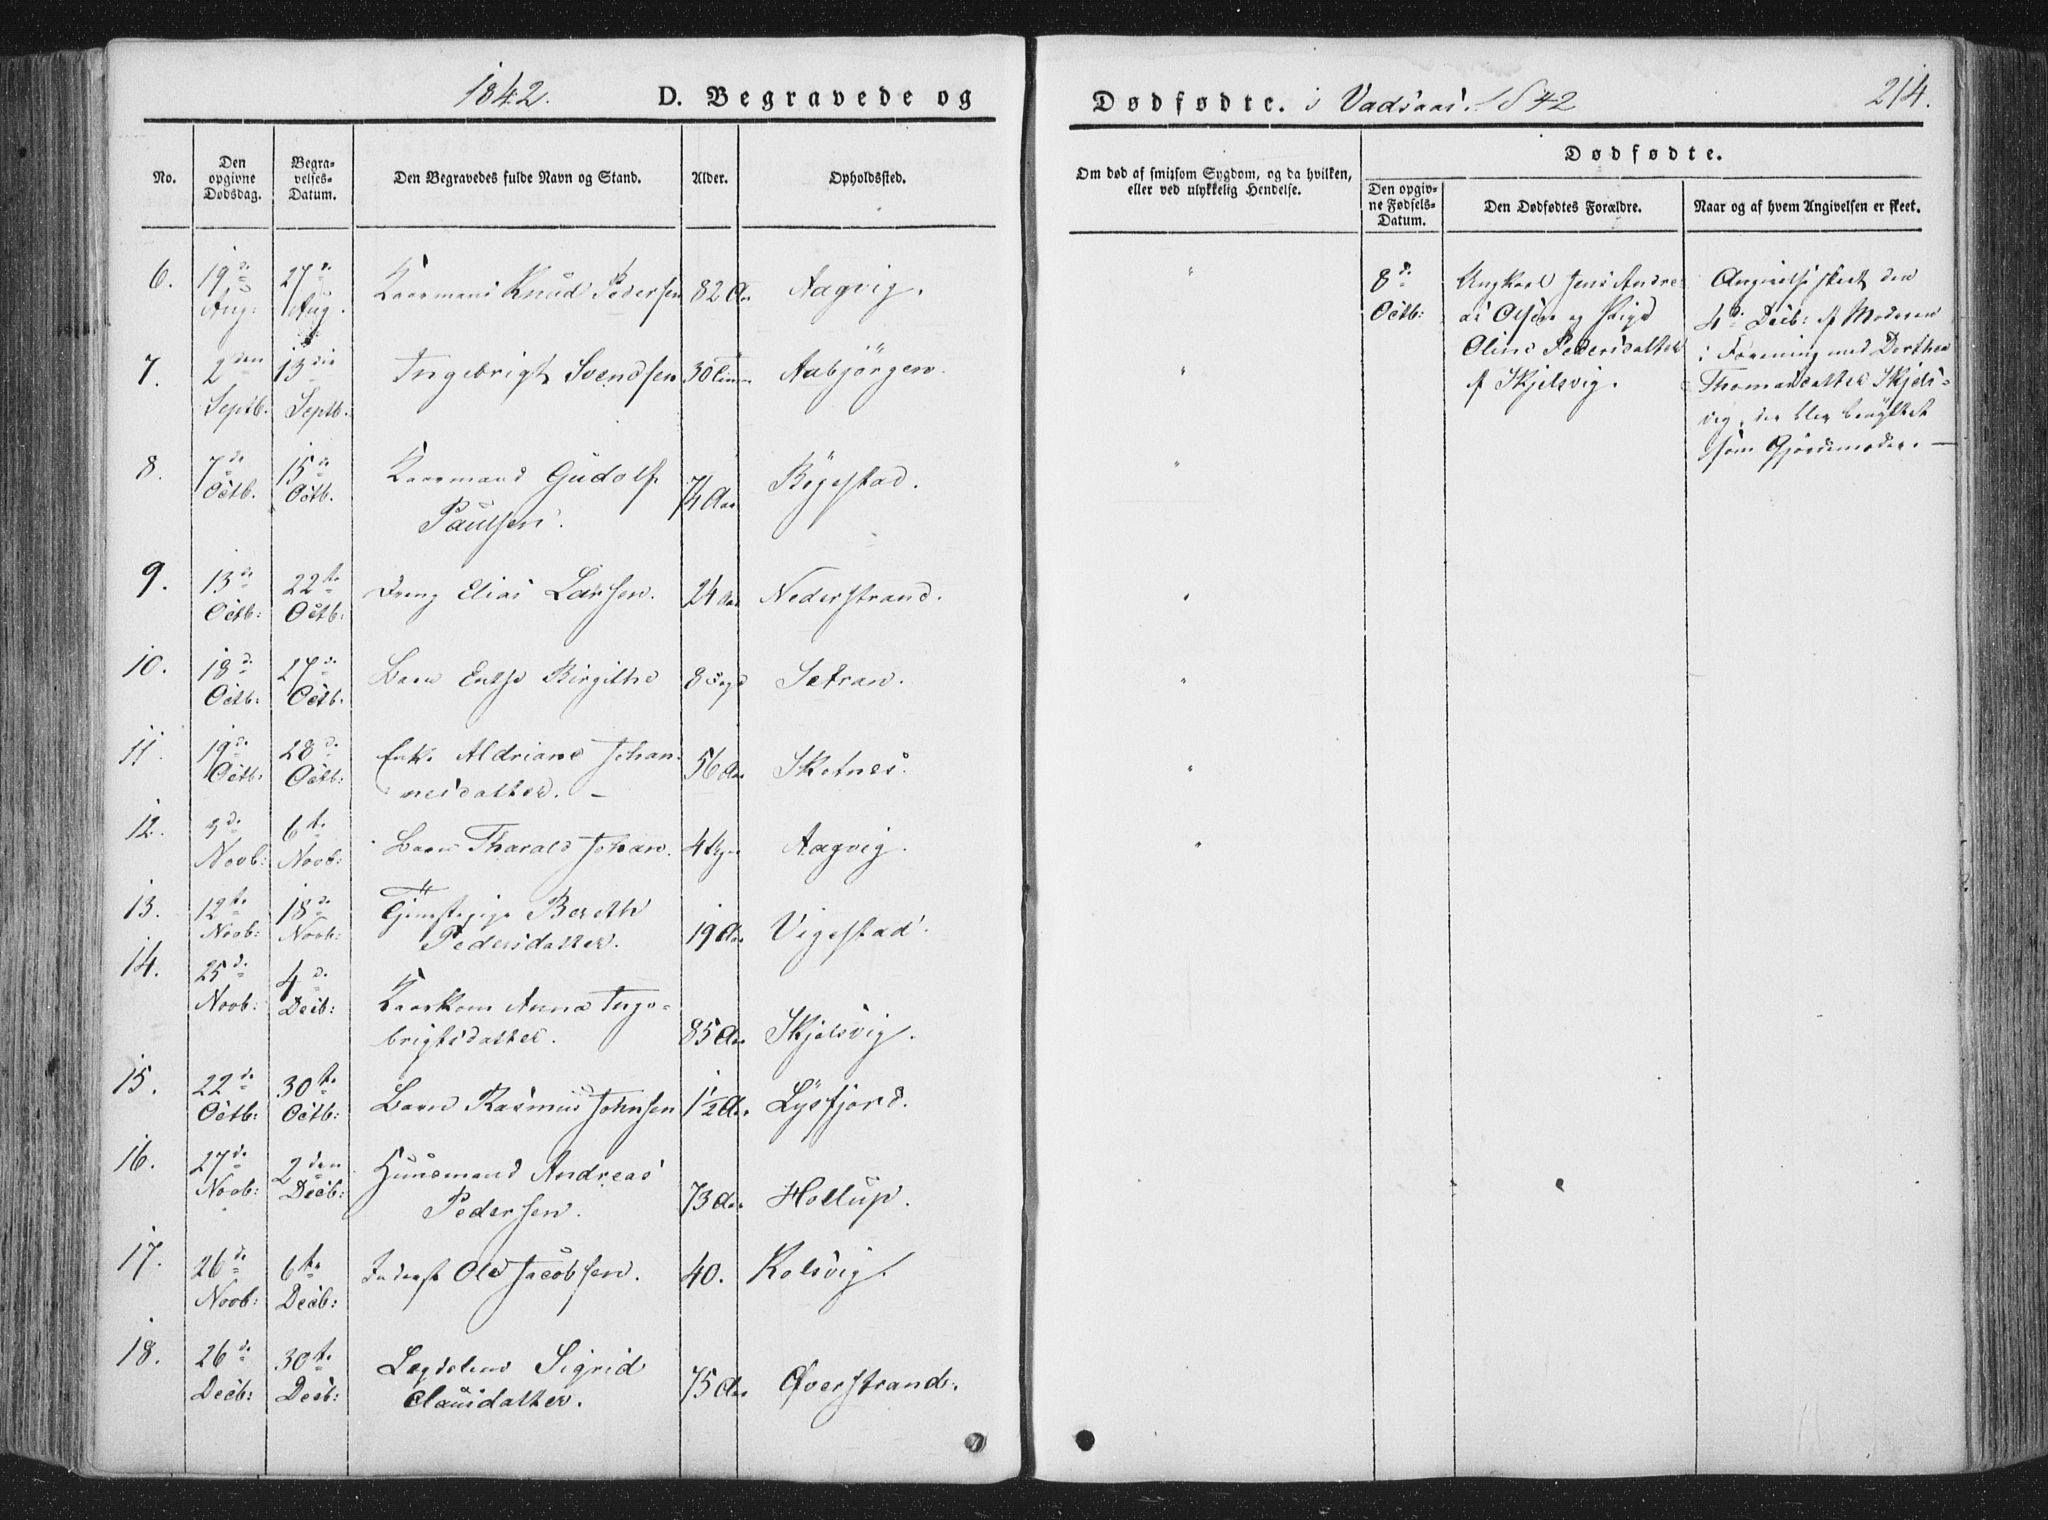 1842.
D. Begravede og
No.
Den opgivne Dødsdag.
Begravelses-Datum.
Den Begravedes fulde Navn og Stand.
Alder.
Opholdssted.
6. 19de Aug: 27de Aug. Kaarmand Knud Pedersen 82 Aar Aagvig.
7. 2den Septb. 13de Septb. Ingebrigt Svendsen 30 Aabjörgen.
8. 7de Octb. 15de Octb. Kaarmand Gudolf
Paulsen. 74 Aar Bögestad.
9. 13de Octb: 22te Octb: Dreng Elias Larsen. 24 Aar Nederstrand.
10. 18de Octb: 27de Octb: Barn Birgithe 8 Dage Setran.
11. 19de Octb: 28de Octb: Enke Aldriane Johan-
nesdatter. 56 Aar Skotnes.
12. 3de Novb: 6te Novb: Barn Tharald Johan. 4 Aagvig.
13. 12te Novb: 18de Novb: Tjenestepige Bereth
Pedersdatter. 19 Aar Vigestad.
14. 25de Novb: 4de Decb: Kaarkone Anna Inge-
brigtsdatter. 85 Aar Skjelsvig.
15. 22de Octb: 30te Octb: Barn Rasmus Johnsen 1 1/2 Aar Lysfjord.
16. 27de Novb: 2den Decb: Huusmand Andreas
Pedersen. 73 Aar Hollup.
17. 26de Novb: 6te Decb: Inderst Ole Jacobsen. 40. Kolsvig.
18. 26de Decb: 30te Decb: Lægdslem Sigrid
Clausdatter. 75 Aar Øverstrand.
Dødfødte. i Vadsaas. 1842
214.
Om død af smitsom Sygdom, og da hvilken,
eller ved ulykkelig Hendelse.
Dødfødte.
Den opgivne Fødsels-Datum.
Den Dødfødtes Forældre.
Naar og af hvem Angivelsen er skeet.
8de
Octb:
Ungkarl Jens Andre-
as Olsen og Pige
Oline Pedersdatter
af Skjelsvig.
Angivelse skeet den
4de Decb: af Moderen
i Forening med Dorthea
Thomasdatter Skjels-
vig, der blev benyttet
som Gjordemoder. —